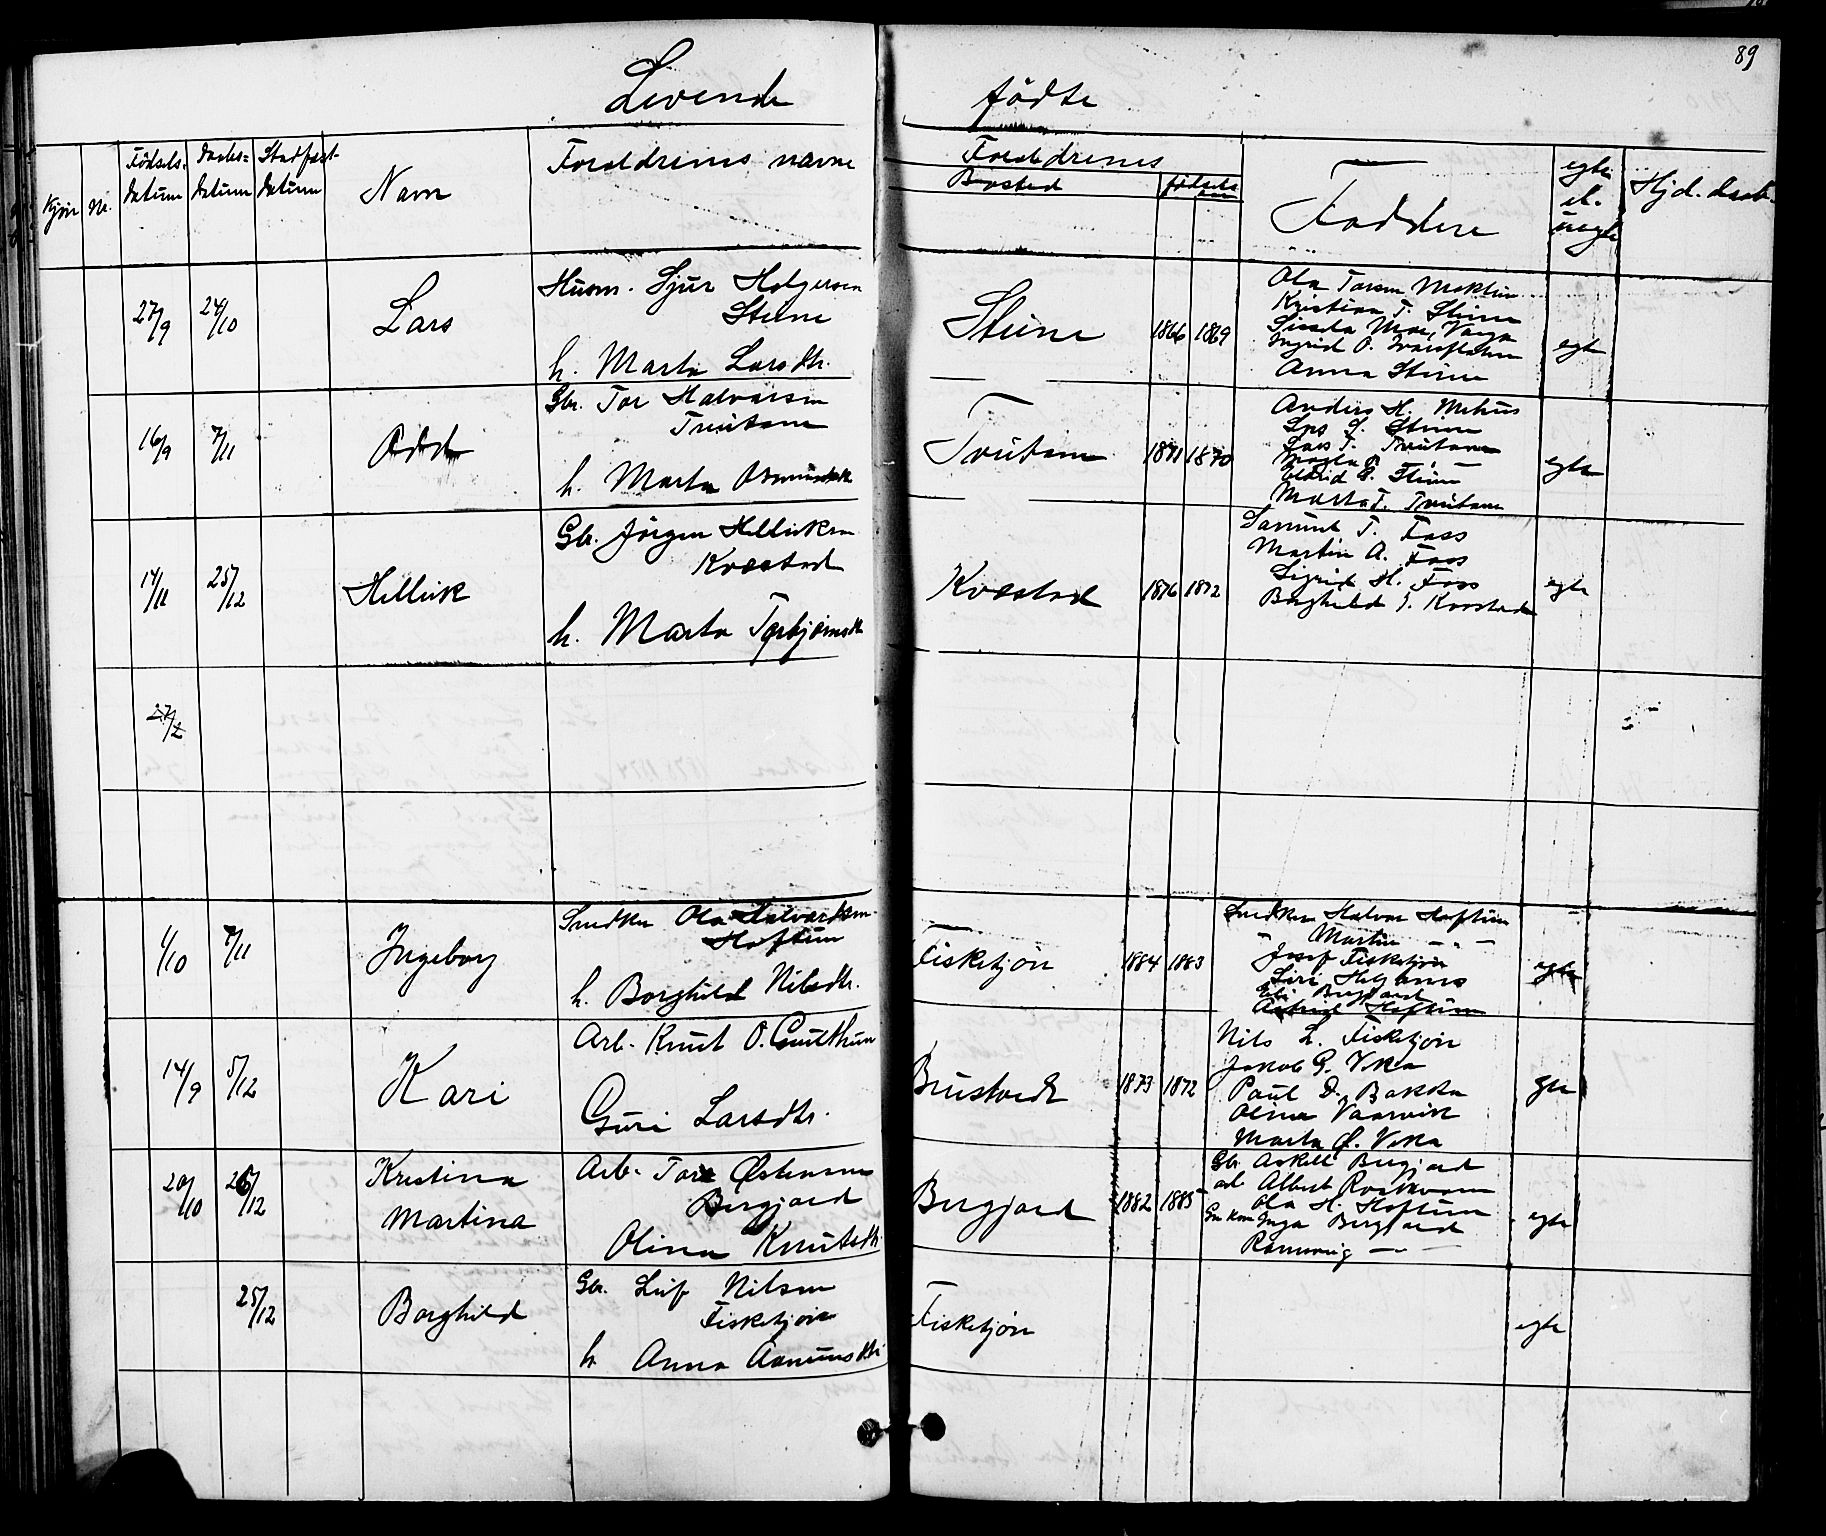 89
Levende fødte
Kjøn Nr. Fødsels- datum Daabs- datum Stadfæst- datum Navn Forældrenes navne Forældrenes Bosted fødsels aar Faddere egte el. uegte Hjd. daab.
27/9 24/10 Lars
Husm. Sjur Holgersen
Steine
h. Marta Larsdtr.
Steine 1866 1869
Ola Torsen
Kristian T. Steine
Moe,
Ingrid O.
Anna Steine
egte
16/9 7/11 Odd
Gbr. Tor Halvorsen
Tveitane
h. Marta
Tveitane 1871 1870
Anders H. Mehus
Lars S. Steine
Lars T. Tveitane
Steine
Marta T. Tveitane
egte
14/11 25/12 Hellick
Gbr. Jørgen Hellicksen
Kvæstad
h. Marta Torbjørnsdtr
Kvæstad 1876 1872
Samund T. Foss
Martin A. Foss
Sigrid H. Foss
Borghild J. Kvæstad
egte
27/2
1/10 7/11 Ingeborg
Snedker Ola Halvardsen
Hoftun
h. Borghild Nilsdtr.
Fisketjøn 1884 1883
Snedker Halvor Hoftun
Martin - " -
Josef Fisketjøn
Siri
Bergjord
Astrid Hoftun
egte
14/9 5/12 Kari
Arb. Knut O.
Guri Larsdtr.
Brustvedt 1873 1872
Nils L. Fisketjøn
Jakob G. Veka
Paul D. Bakka
Olina Vaarvik
Marta Ø. Veka
egte
20/10 26/12 Kristina
Martina
Arb. Tore Østensen
Bergjord
Olina Knutsdtr
Bergjord 1882 1885
Gbr. Askell Bergjord
arb Albert
Ola H. Hoftun
Inga Bergjord
Rannveig - " -
egte
25/12 Borghild
Gbr. Leif Nilsen
Fisketjøn
h. Anna Aamundsdtr
Fisketjøn
egte